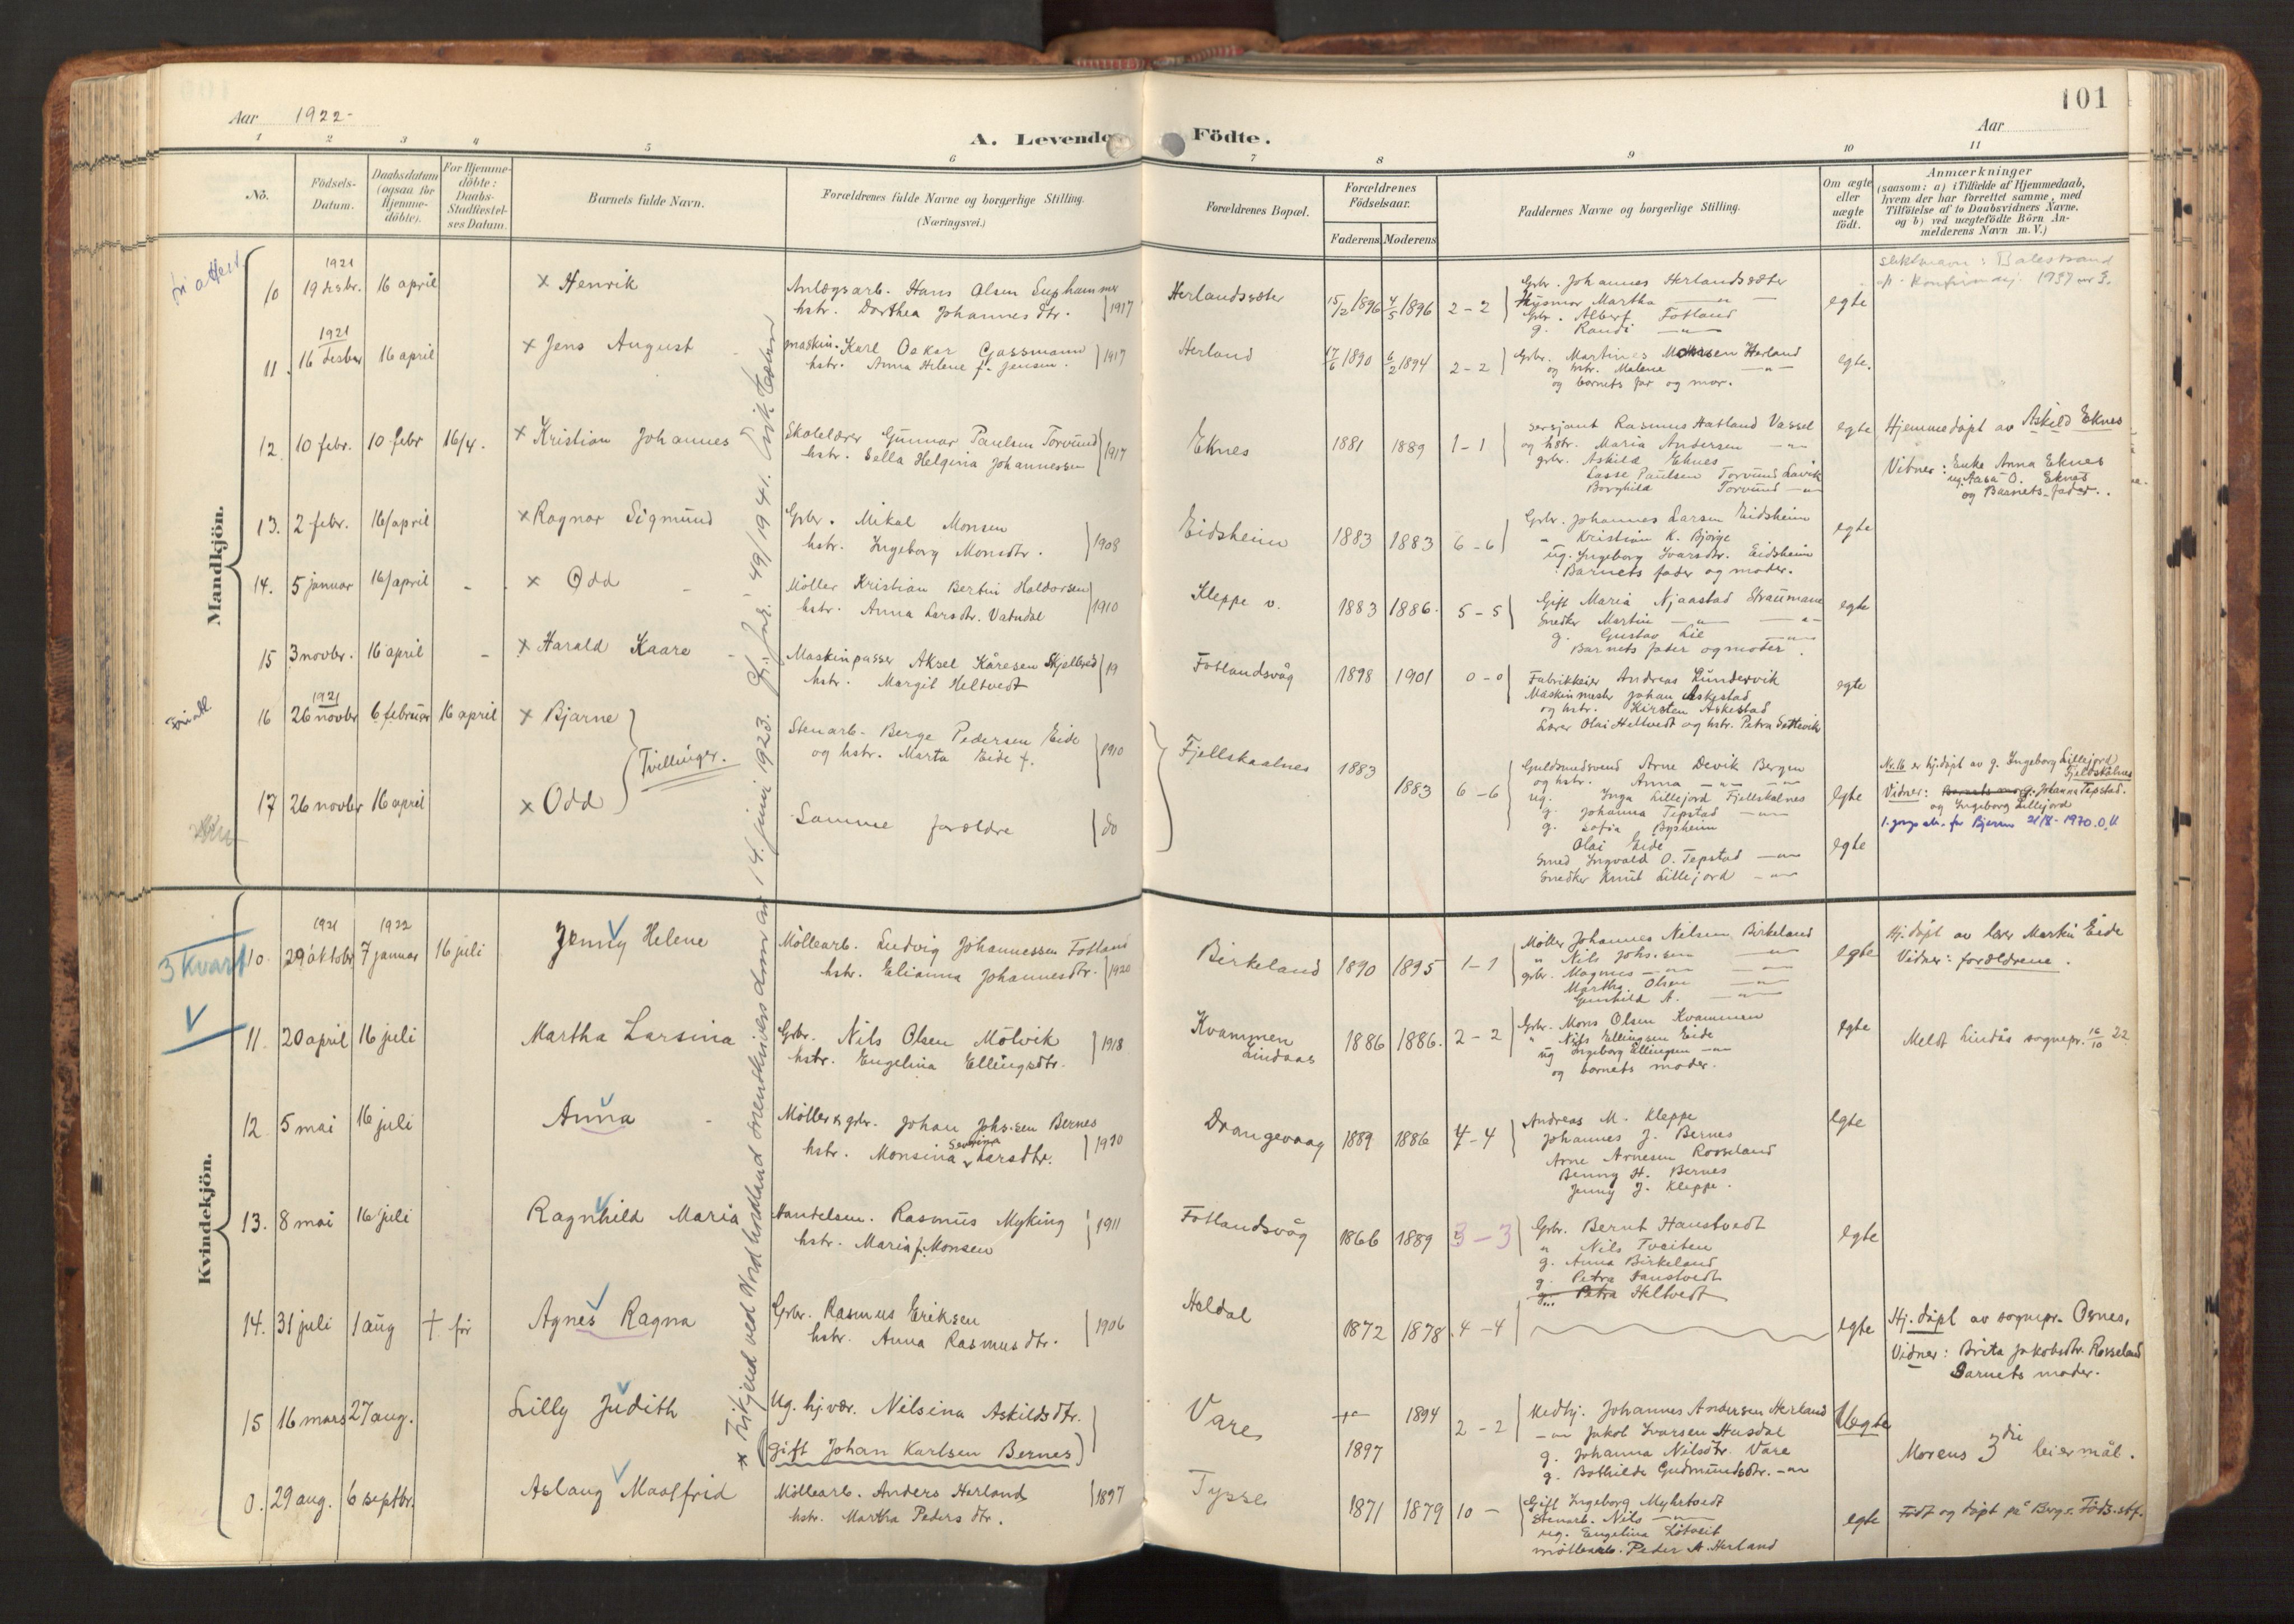 101
Aar 1922-
Aar
A. Levende Födte.
1 2 3 4 5 6 7 8 9 10 11
No.
Födsels-
Datum.
Daabsdatum
(ogsaa for
Hjemme-
döbte).
For Hjemme-
döbte:
Daabs-
Stadfæstel-
ses Datum.
Barnets fulde Navn.
Forældrenes fulde Navne og borgerlige Stilling.
(Næringsvei.)
Forældrenes Bopæl.
Forældrenes
Födselsaar.
Faderens Moderens
Faddernes Navne og borgerlige Stilling.
Om ægte
eller
uægte
födt.
Anmærkninger
(saasom: a) i Tilfælde af Hjemmedaab,
hvem der har forrettet samme, med
Tilföielse af to Daabsvidners Navne,
og b) ved uægtefödte Börn An-
melderens Navn m. V.)
Mandkjön.
1921
10 19 desbr. 16 april × Henrik
Anlægsarb. Hans Olsen
hstr. Dorthea Johannesdtr. 1917
Herlandsæter 15/2 1896 4/5 1896 2-2
Grbr. Johannes Herlandsæter
Husmor Martha —"—
Grbr. Albert Fotland
g. Randi —"—
egte
Balestrand
1937 nr 3.
1921
11. 16 desber 16 april × Jens August
maskin. Karl Oskar Gassmann
hstr. Anna Helene f. Jensen. 1917
Herland 17/6 1890 6/2 1894 2-2
Grbr. Martines Monsen Herland
og hstr. Malene —"—
og barnets far og mor.
egte.
12. 10 febr. 10 febr 16/4. × Kristian Johannes
Skolelærer Gunnar Paulsen Torvund
hstr. Sella Helgina Johannessen 1917
Eknes 1881 1889 1-1
sersjant Rasmus Hatland Vassel
og hstr. Maria Andersen —"—
grbr. Askild Eknes
Lasse Paulsen Torvund Lavik
Borghild Torvund —"—
egte
Hjemmedöpt av Askild Eknes
Vitner: Enke Anna Eknes
ug. Aasa O. Eknes
og Barnets fader.
13. 2 febr. 16/april × Ragnar Sigmund
Grbr. Mikal Monsen
hstr. Ingeborg Monsdtr. 1908
Eidsheim 1883 1883 6-6
Grbr. Johannes Larsen Eidsheim
" Kristian K. Bjørge
ug. Ingeborg Ivarsdtr. Eidsheim
Barnets fader og moder.
egte
14. 5 januar 16/april - × Odd
Møller Kristian Bertin Haldorsen
hstr. Anna Larsdtr. Vatndal 1910
Kleppe v. 1883 1886. 5-5
Gift Maria Njaastad Straumane
Snedker Martin —"— —"—
g. Gustav Lie —"—
Barnets fader og moder.
egte
15 3 novbr. 16 april - × Harald Kaare
Maskinpasser Aksel Kåresen
hstr. Margit Heltvedt 19
Fotlandsvåg 1898 1901 0-0
Fabrikkeier Andreas Lundervik
Maskinmestr Johan Askestad
og hstr. Kirsten Askestad
Lærer Olai Heltvedt og hstr. Petra
egte
1921
16 26 novbr 6 februar 16 april × Bjarne
Tvillinger.
Stenarb. Berge Pedersen Eide
og hstr. Marta Eide f. 1910
Fjellskaalnes 1883 1883 6-6
Guldsmedsvend Arne Devik Bergen
og hstr. Anna —"— —"—
ug. Inga Lillejord Fjellskalnes
g. Johanna Tepstad —"—
g. Sofia Bysheim
Olai Eide
Smed Ingvald O. Tepstad —"—
Snedker Knut Lillejord —"—
egte
Nr. 16 er hj.døpt av g. Ingeborg Lillejord,
Fjeldskålnes
Vidner: g. Johanna Tepstad.
og Ingeborg Lillejord
Bjarne 21/8-1970. O.U
17 26 novber 16 april × Odd
Samme forældre do
egte
Kvindekjön.
3 Kvart
1921 1922
10. 29 oktober 7 januar 16 juli Jenny Helene
Møllearb. Ludvig Johannessen Fotland
hstr. Elianna Johannesdtr. 1920
Birkeland 1890 1895 1-1
Møller Johannes Nilsen Birkeland
" Nils Johs.sen —"—
grbr. Magnus —"— —"—
Martha Olsen —"—
Gunhild A. —"—
egte
Hj. døpt av lærer Martin Eide
Vidner: forældrene.
11. 20 april 16 juli Martha Larsina
Grbr. Nils Olsen Mölvik
hstr. Engelina Ellingsdtr. 1918
Kvammen
Lindaas 1886 1886. 2-2
Grbr. Mons Olsen Kvammen
" Nils Ellingsen Eide
ug Ingeborg Ellingsen —"—
og barnets moder.
egte
Meldt Lindås sognepr. 16/10 22
12 5 mai 16 juli Anna
Møller & grbr. Johan Johs.sen Bernes
hstr. Monsina Severina Larsdtr. 1920
Drangevaag 1889 1886 4-4
Andreas M. Kleppe
Johannes J. Bernes
Arne Arnesen Rosseland
Benny H. Bernes
Jenny J. Kleppe.
egte
13. 8 mai 16 juli Ragnhild Maria
Handelsm. Rasmus Myking
hstr. Maria f. Monsen 1911
Fotlandsvåg 1866 1889 3-3
Grbr. Bernt Hanstvedt
" Nils Tveiten
g. Anna Birkeland
g. Petra Hanstvedt
g. Petra Heltvedt
egte
14. 31 juli 1 aug † før Agnes Ragna
Grbr. Rasmus Eriksen
hstr. Anna Rasmusdtr. 1906
Haldal 1872 1878 4-4
egte
Hj. døpt av sognepr. Osnes,
Vidner: Brita Jakobsdtr. Rosseland
Barnets moder.
15 16 mars 27 aug. Lilly Judith
Ug. hj.vær. Nilsina Askildsdtr.
(gift Johan Karlsen Bernes)
Vare 1897 1894 2-2
Medhj. Johannes Andersen Herland
—"— Jakob Ivarsen Husdal
g. Johanna Nilsdtr. Vare
g. Bothilde Gudmundsdtr. —"—
Uegte
Morens 3die leiermål.
0. 29 aug. 6 septbr. Aslaug Maalfrid
Møllearb. Anders Herland
hstr. Martha Pedersdtr. 1897
Tysse 1871 1879 10 -
Gift Ingeborg Myhrtvedt
Stenarb. Nils —"—
ug. Engelina Løtveit
møllearb. Peder A. Herland
egte
Født og døpt på Berg. Føds.stf.
× Frikjend ved Nordhordland sorenskriverdom av 14. juni 1923.
49/1941.